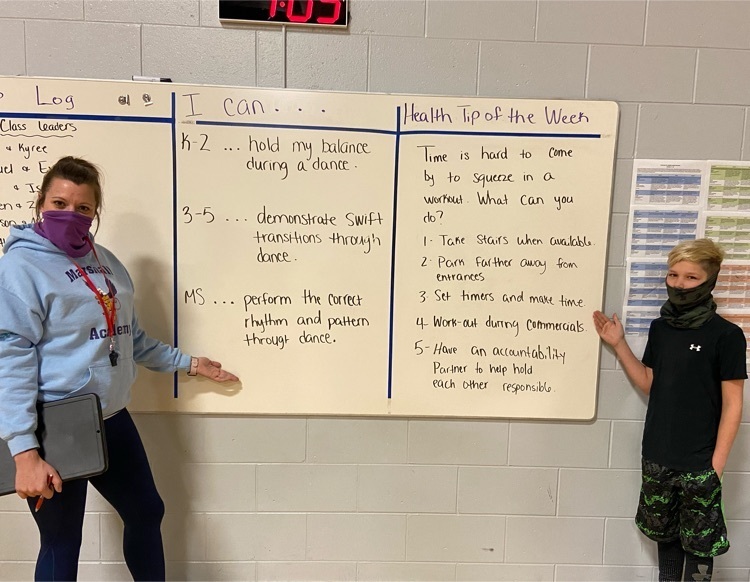 1:05
Log
Class leaders
& Kyree
I can . . .
K-2 ... hold my balance
during a dance.
3-5 .... demonstrate swift
transitions through
dance.
MS ... perform the correct
rhythm and pattern
through dance.
Health Tip of the Week
Time is hard to come
by to squeeze in a
workout. What can you
do?
1- Take Stairs when available.
2- Park farther away from
entrances
3- Set timers and make time.
4- Work-out during Commercials.
5- Have an accountability
Partner to help hold
each other responsible.
Academy